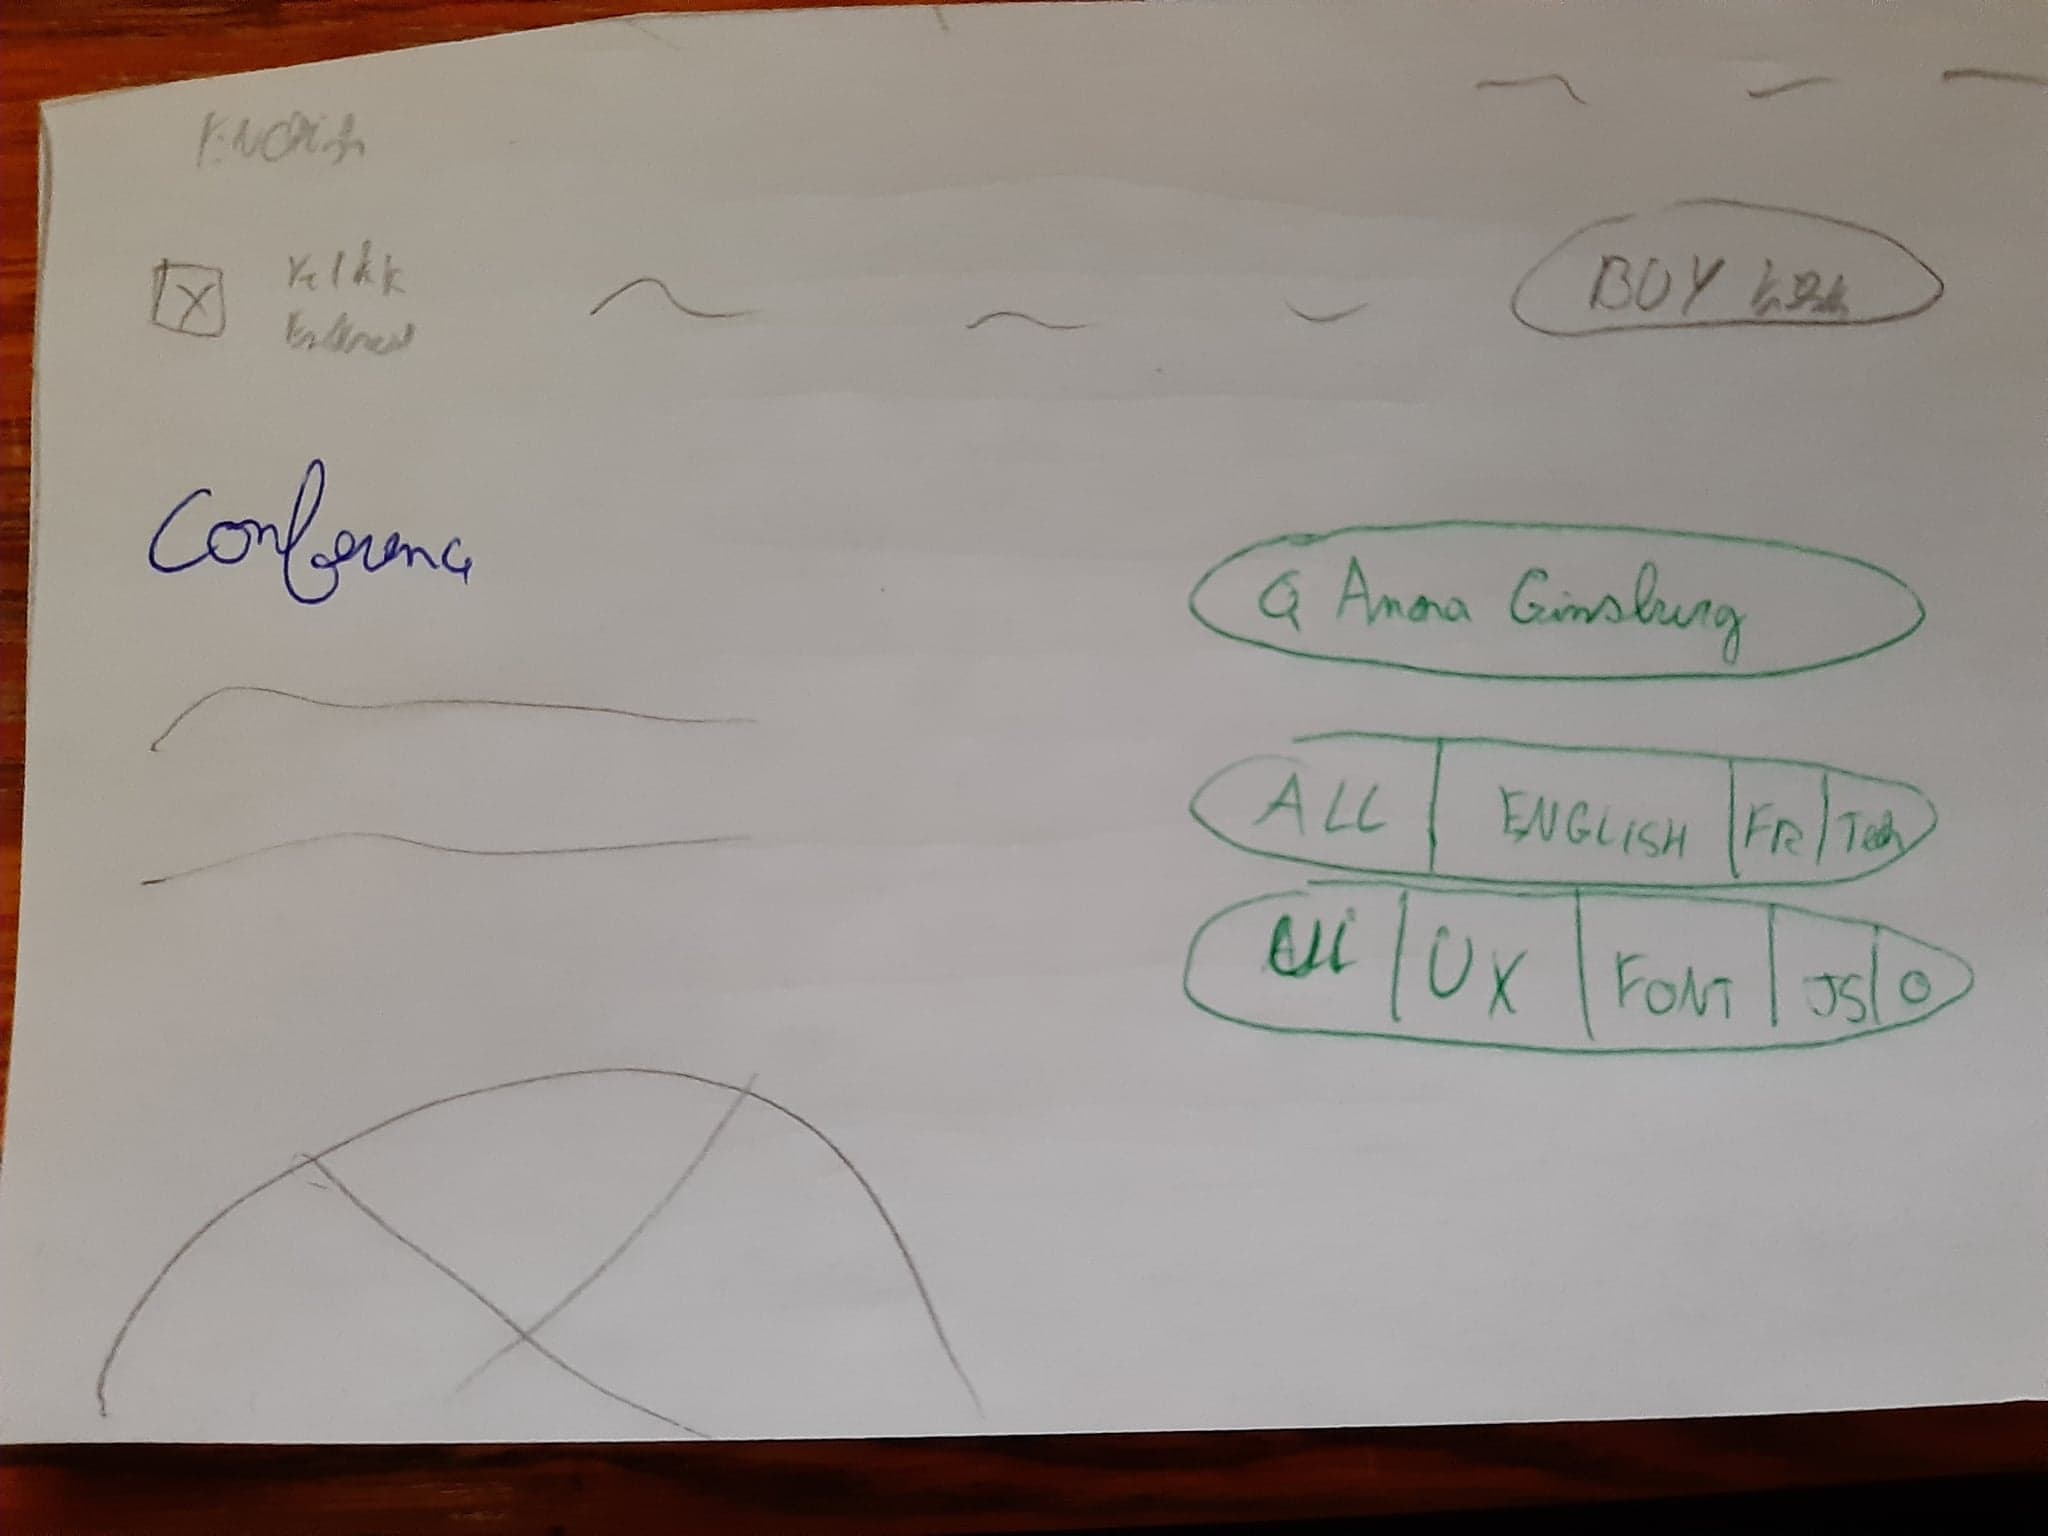 BUY
Conference
Q Anna Ginsburg
ALL ENGLISH FR Tech
All UX FONT JS O